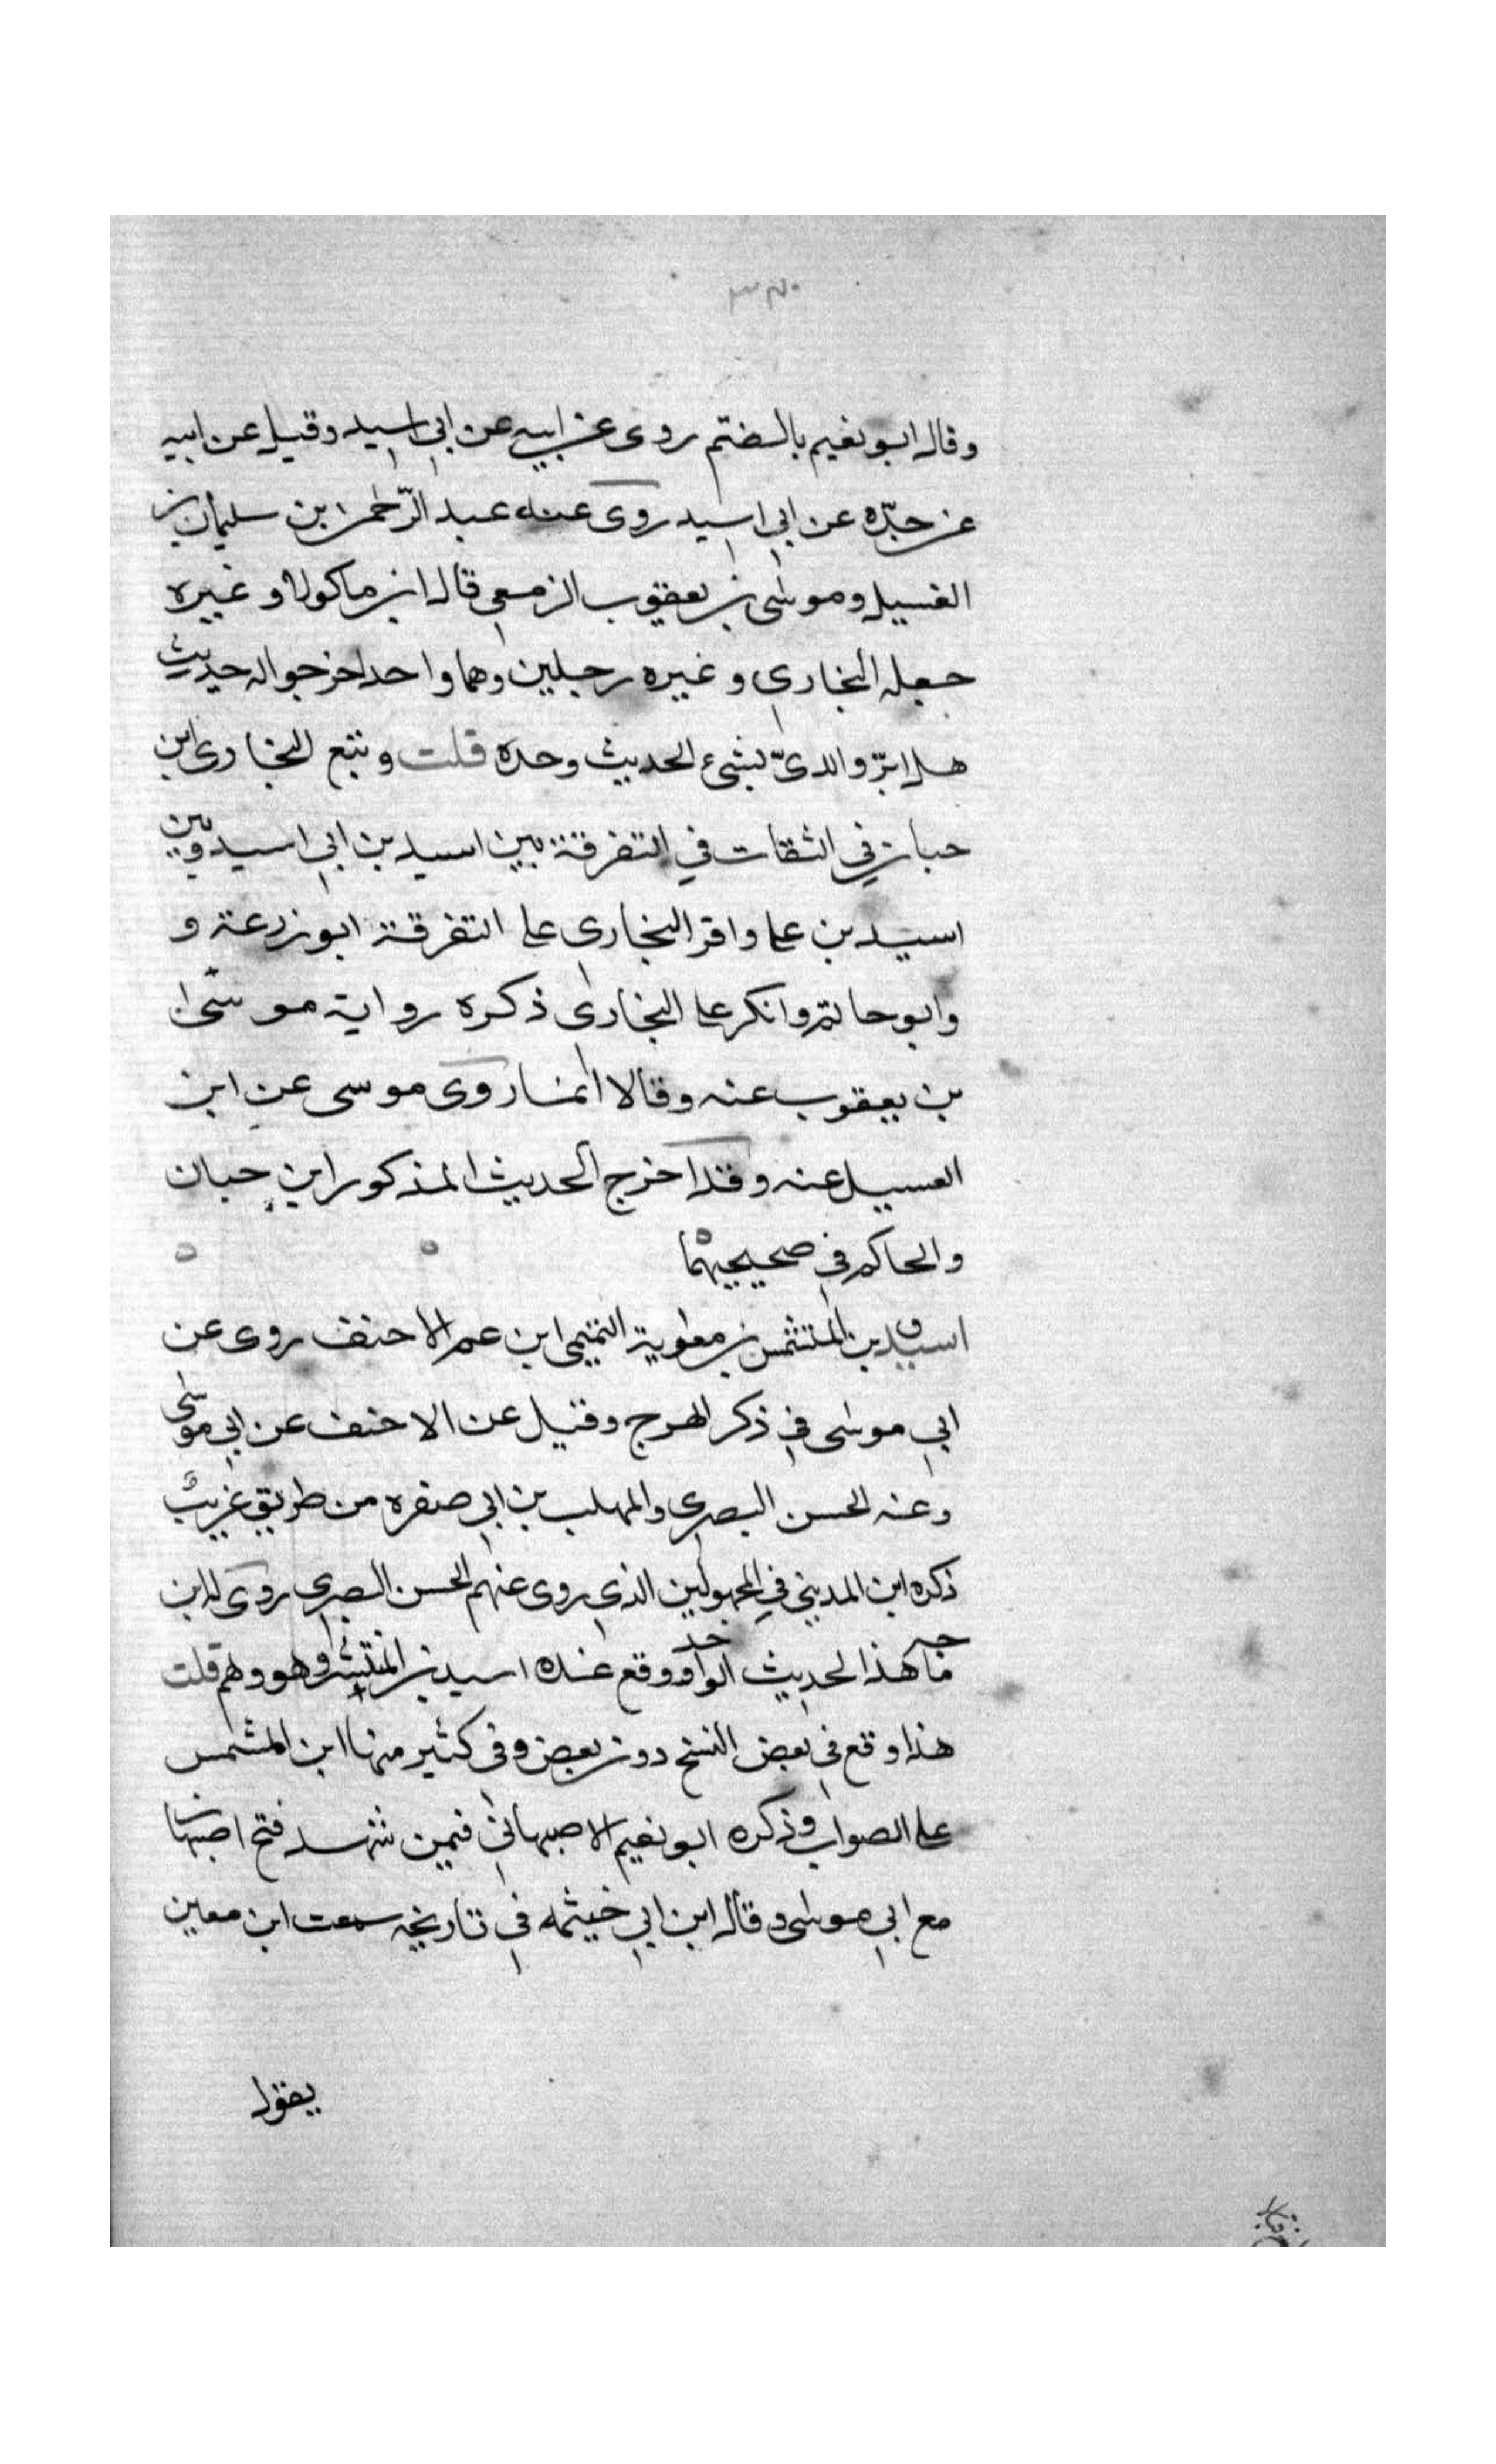 وقال ابو نعيم بالضم روى عن ابيه عن ابي اسيد وقيل عن ابيه
عن جدّه عن ابي اسيد روى عنه عبد الرّحمن بن سليمان بن
الغسيل وموسى بن يعقوب الزمعي قال ابن ماكولا وغيره
جعله البخاري وغيره رجلين وهما واحد اخرجوا له حديث
هل ابرّ والديّ بشيء الحديث وحده قلت وتبع البخارى ابن
حبان في الثقات في التفرقة بين اسيد بن ابي اسيد وبين
اسيد بن على واقر البخارى على التفرقة ابو زرعة و
وابو حاتم وانكر على البخارى ذكره رواية موسى
بن يعقوب عنه وقالا انما روى موسى عن ابن
الغسيل عنه وقد اخرج الحديث المذكور ابن حبان
والحاكم في صحيحيهما
اسيد بن المتشمس بن معوية التميمى ابن عم الاحنف روى عن
ابي موسى في ذكر الهرج وقيل عن الاحنف عن ابي موسى
وعنه الحسن البصري والمهلب بن ابي صفره من طريق غريب
ذكره ابن المديني في المجهولين الذي روى عنهم الحسن البصري روى له ابن
ماجه هذا الحديث الواحد ووقع عنده اسيد بن المنتشر وهو وهم قلت
هذا وقع في بعض النسخ دون بعض وفي كثير منها ابن المتشمس
على الصواب وذكره ابو نعيم الاصبهاني فيمن شهد فتح اصبهان
مع ابي موسى وقال ابن ابي خيثمه في تاريخه سمعت ابن معين
يقول